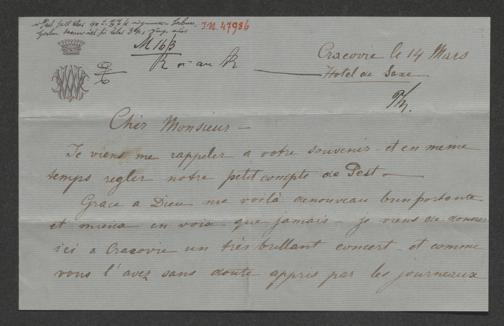 I.N. 47986
M 16/3
Cracovie le 14 Mars
Hotel de Saxe
Cher Monsieur –
Je viens me rappeler a votre souvenir et en meme
temps regler notre petit compte de Pest –
Grace a Dieu me voilà denouveau bien portante
et mieux en voix que jamais – je viens de donner
ici a Cracovie un très brillant concert – et comme
vous l'avez sans doute appris par les journeaux